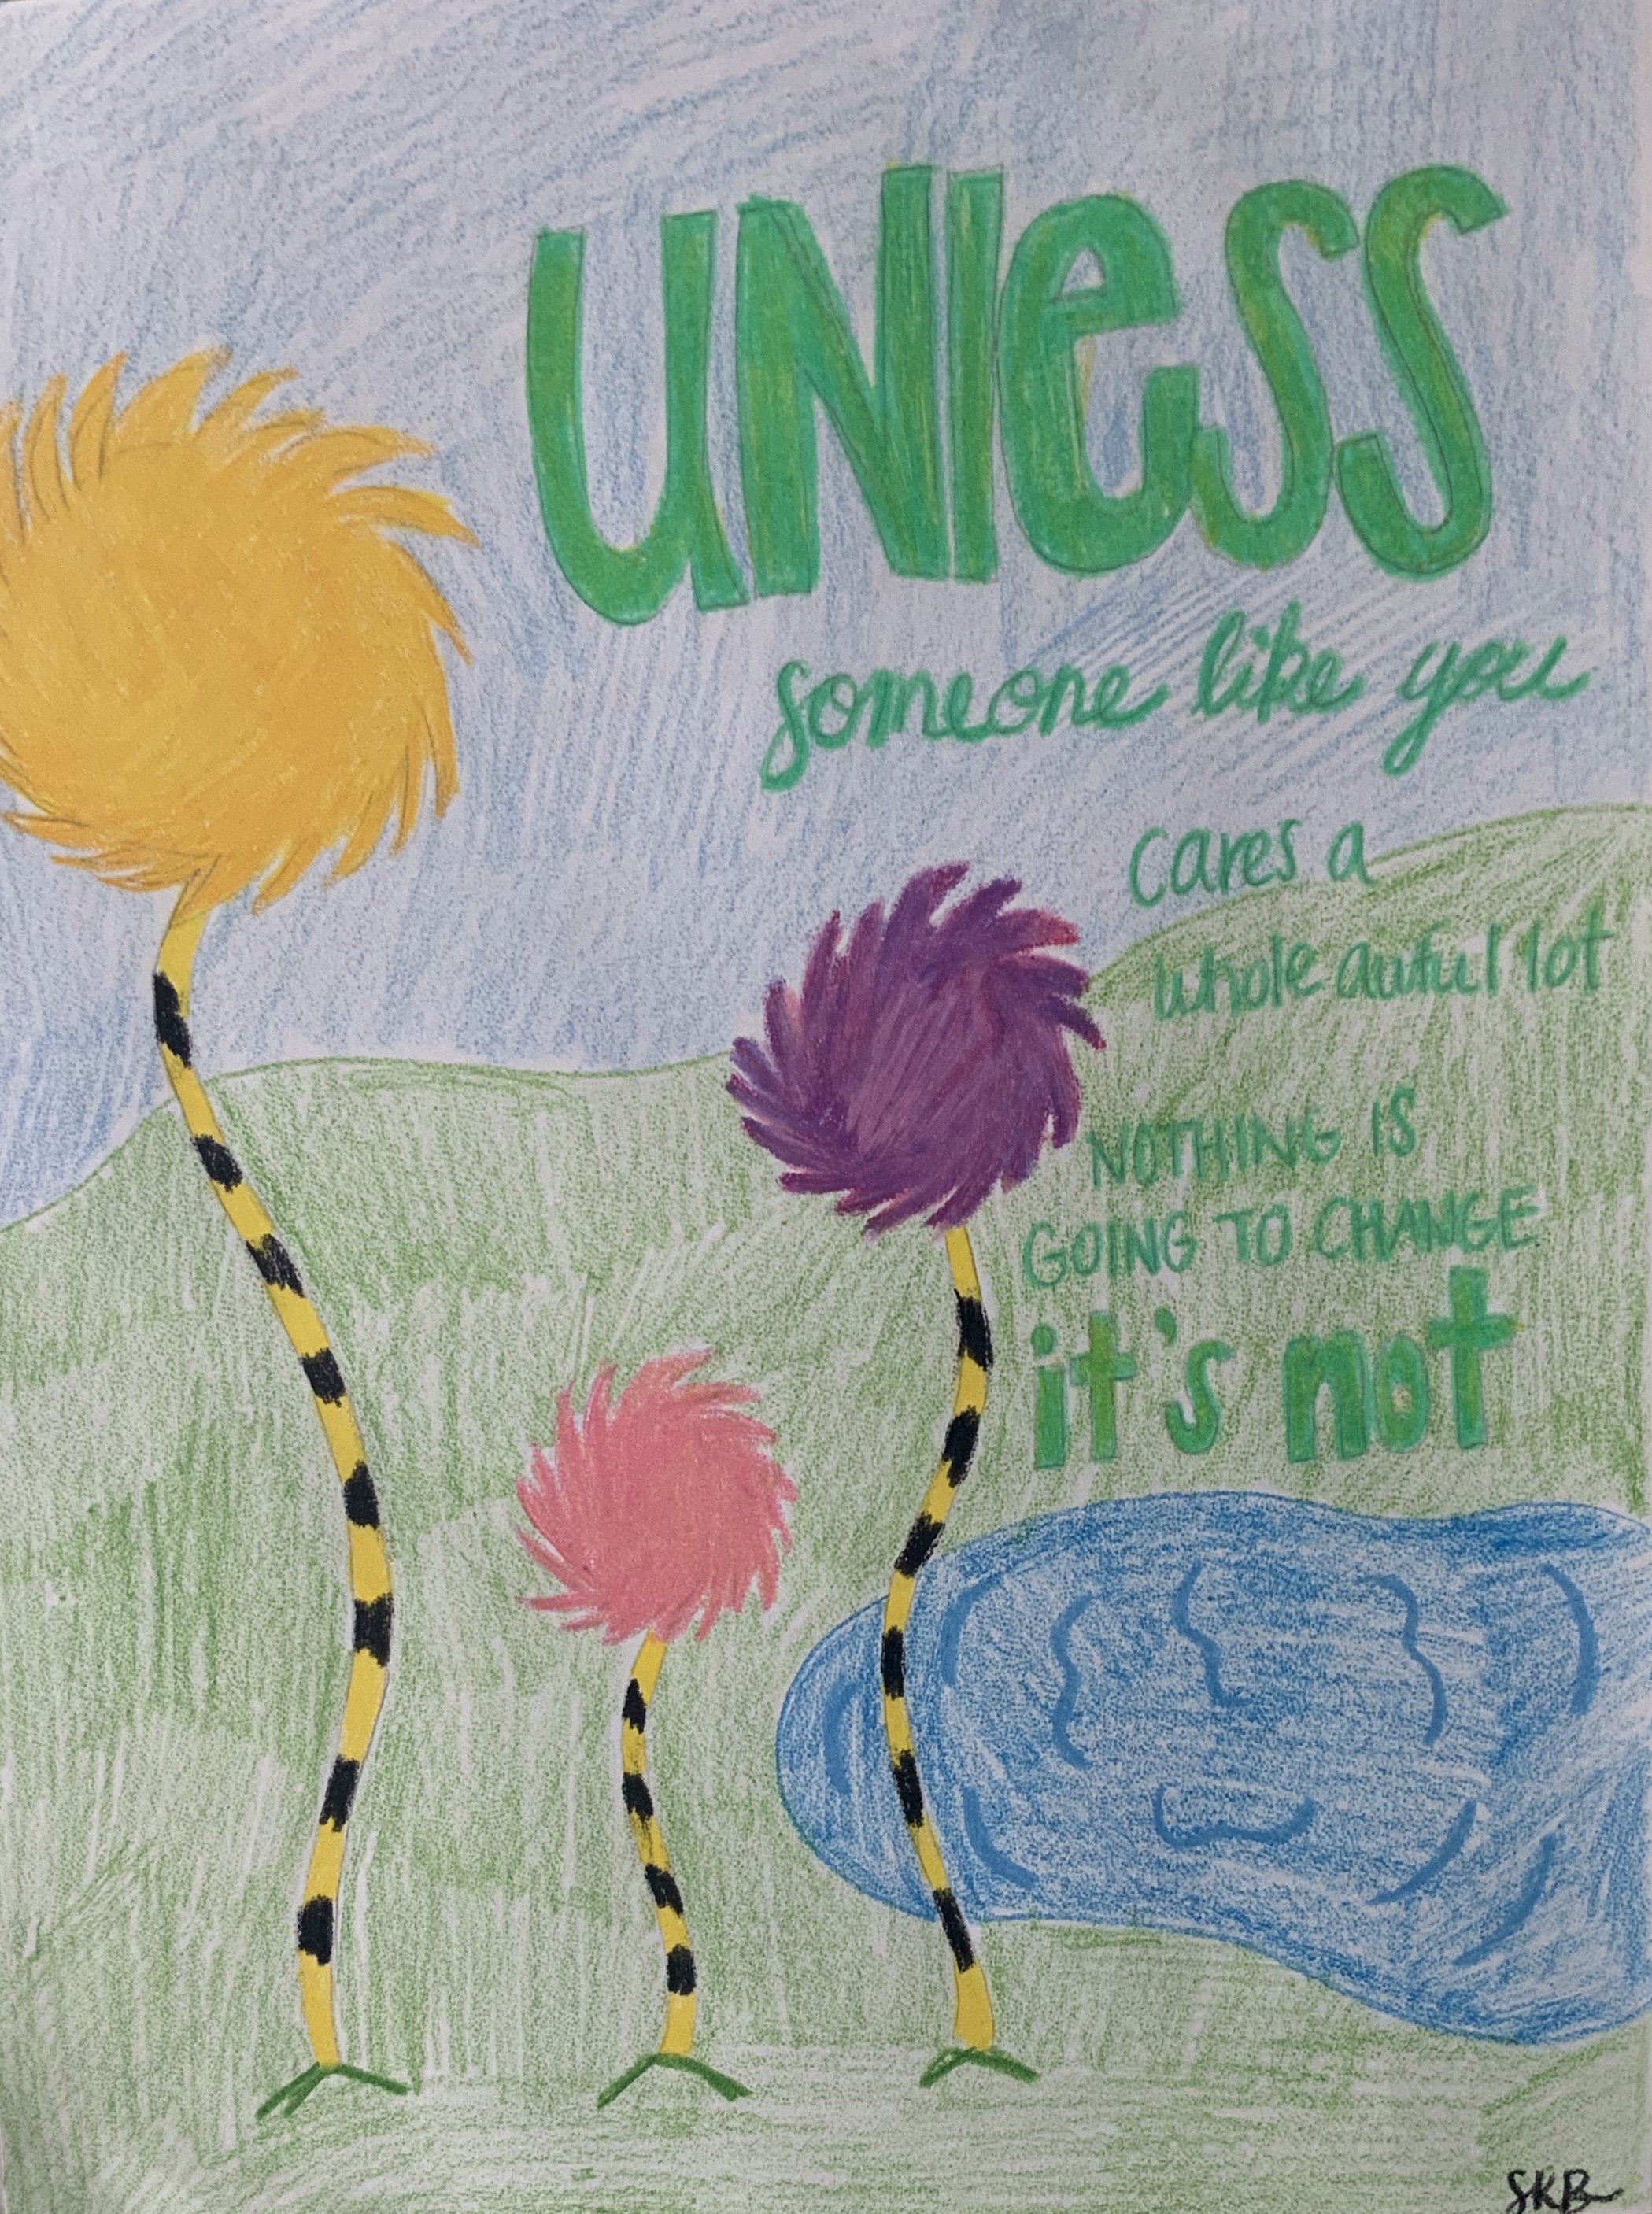 UNless
someone like you
cares a
whole awful lot
NOTHING IS
GOING TO CHANGE
it's not
SKB